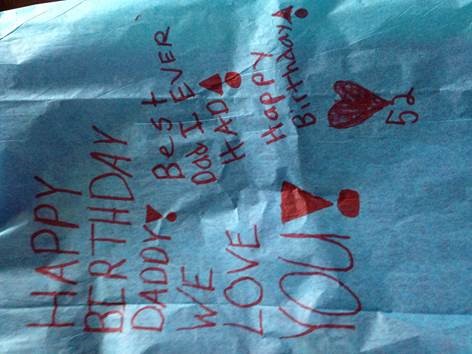 HAPPY
BERTHDAY
DADDY!
WE
LOVE
YOU!
Best
Dad I EVER
HAD!
Happy
Birthday!
52